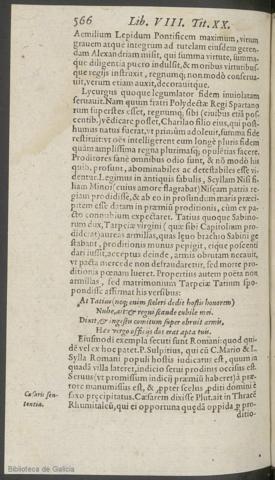 566 Lib. VIII. Tit. XX.
Aemilium Lepidum Pontificem maximum, virum
grauem atque integrum ad tutelam eiusdem gerendam
dam Alexandriam misit, qui summa virtute, summaque
que diligentia puero indulsit, & moribus virtutibusque
que regijs instruxit, regnumq; non modò conseruauit,
uit, verum etiam auxit, decorauitque.
Lycurgus quoque legumlator fidem inuiolatam
seruauit. Nam quum fratri Polydectæ Regi Spartano
rum superstes esset, regnumq; sibi
centib. vēdicare posset, Charilao filio eius, qui post-
humus natus fuerat, vt primùm adoleuit, summa fide
restituit: vt nōs intelligerent eum longè pluris fidem
quàm amplissima regna
Proditores sanè omnibus odio sunt, & nō modò his
quib. prosunt, abominabiles ac detestabiles esse vi-
dentur. Legimus in antiquis fabulis, Scyllam Nisi fi-
liam Minoi (cuius amore flagrabat) Niseam patris re-
giam prodidisse, & ab eo in profundum maris præci-
pitem esse datam in præmiū proditionis, cùm ex pa-
cto connubium expectaret. Tatius quoque Sabino-
rum dux, Tarpeiæ virgini (quæ sibi Capitolium pro-
diderat) aureas armillas, quas læuo brachio Sabini ge
stabant, proditionis munus pepigit, eique poscenti
dari iussit, acceptus deinde, armis obrutam necauit,
vt pacta mercede non defraudaretur, sed morte pro-
ditionis pœnam lueret. Propertius autem poëta non
armillas, sed matrimonium Tarpeiæ Tatium spo-
pondisse affirmat his versibus:
At Tatius (neq; enim sceleri dedit hostis honorem)
Nube, ait: & regni scande cubile mei.
Dixit, & ingestis comitum super obruit armis,
Hæc virgo officijs dos erat apta tuis.
Eiusmodi exempla secuti sunt Romani: quod qui-
dē vel ex hoc patet. P. Sulpitius, qui cū C. Mario & L.
Sylla Romani populi hostis iudicatus est, quum in
quadā villa lateret, indicio serui proditus occisus est.
Seruus (vt promissum indicij præmiū haberet) à præ-
tore manumissus est, & ppter scelus pditi domini è
saxo præcipitatus. Cæsarem dixisse Plut. ait in Thracē
Rhumitalcū, qui ei opportuna quædā oppida
ditio-
Cæsaris sen-
tentia.
Biblioteca de Galicia